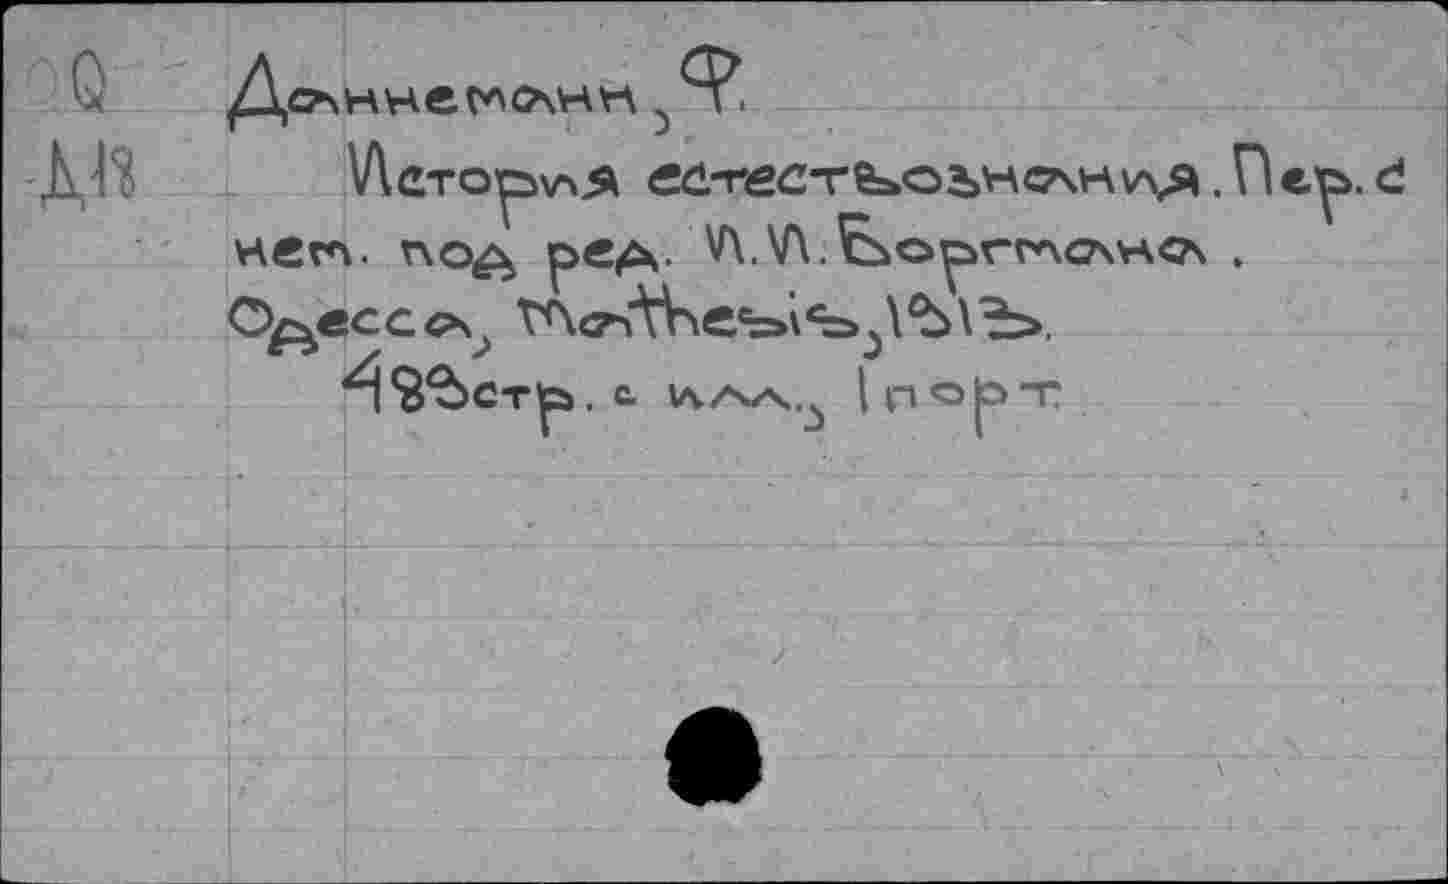 Q Даннеманн, Ф.
Д17 История естествознания. Пер. с
нем. под ред. И.И. Боргмана.
Одесса, Mathesis, 1913.
486 стр. с илл., 1 порт.